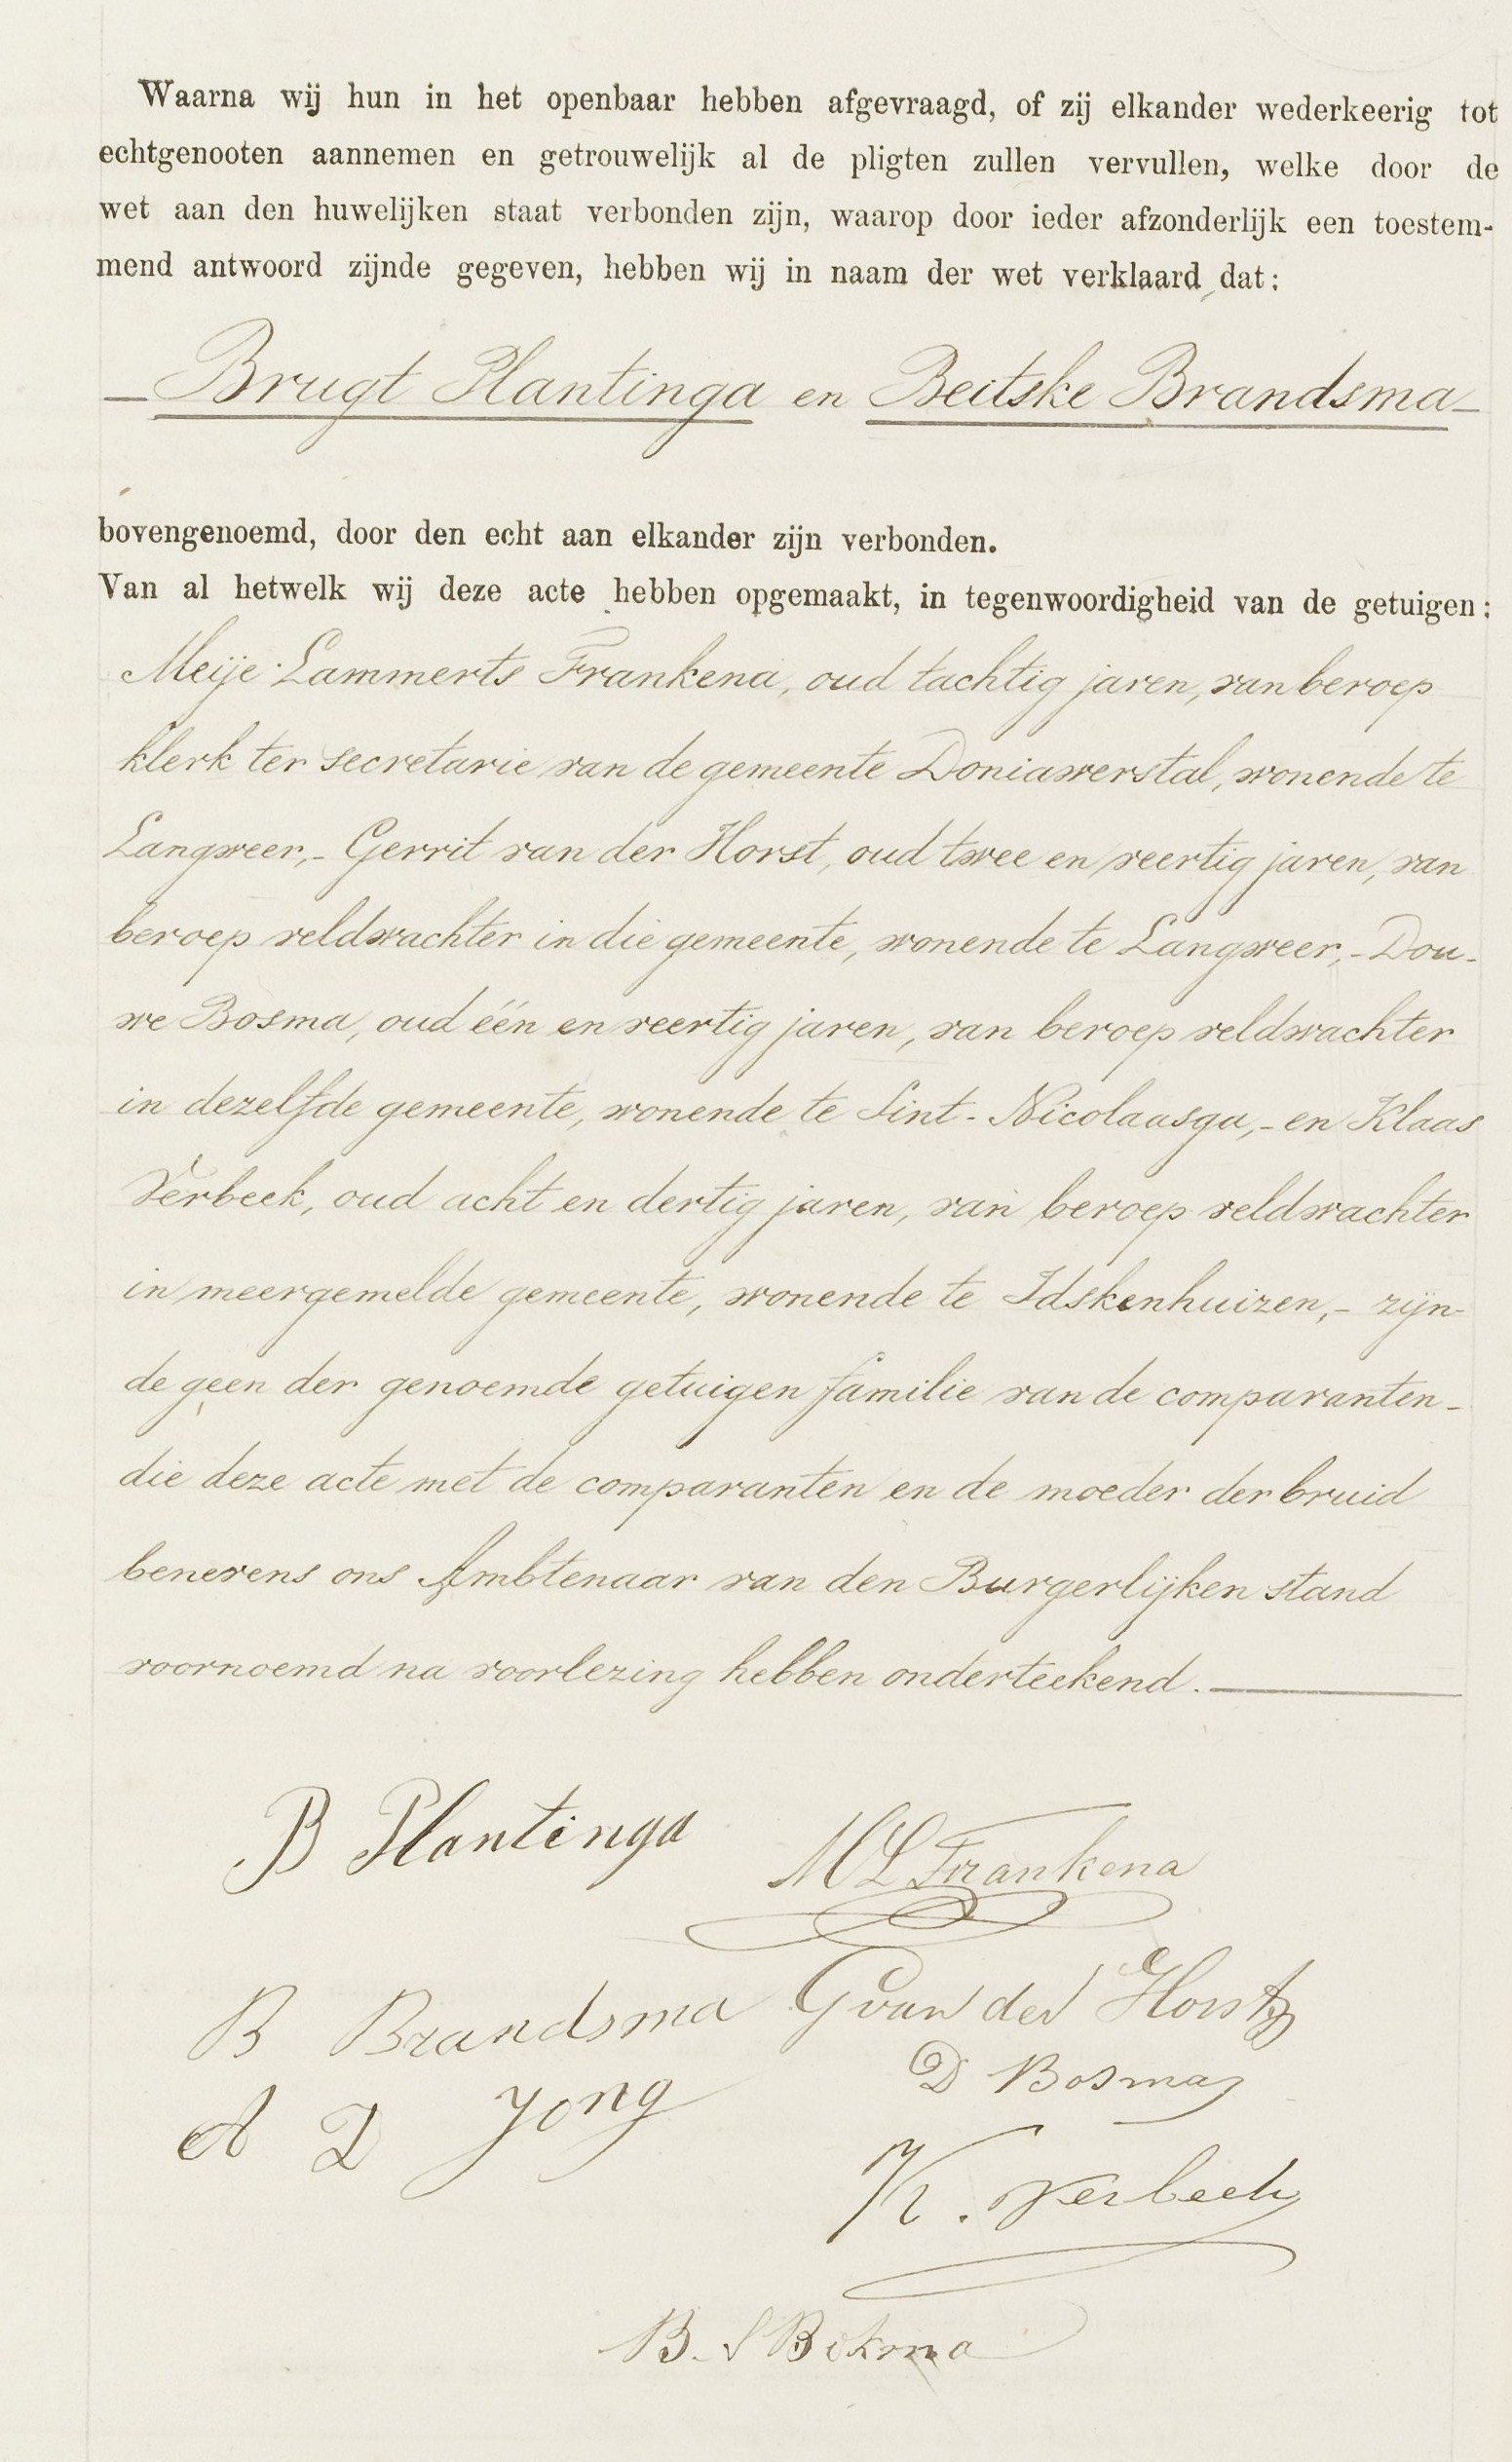 Waarna wij hun in het openbaar hebben afgevraagd, of zij elkander wederkeerig tot
echtgenooten aannemen en getrouwelijk al de pligten zullen vervullen, welke door de
wet aan den huwelijken staat verbonden zijn, waarop door ieder afzonderlijk een toestem-
mend antwoord zijnde gegeven, hebben wij in naam der wet verklaard dat:
Brugt Plantinga en Beitske Brandsma
bovengenoemd, door den echt aan elkander zijn verbonden.
Van al hetwelk wij deze acte hebben opgemaakt, in tegenwoordigheid van de getuigen:
Meije Lammerts Frankena, oud tachtig jaren, van beroep
klerk ter secretarie van de gemeente Doniawerstal, wonende te
Langweer,- Gerrit van der Horst, oud twee en veertig jaren, van
beroep veldwachter in die gemeente, wonende te Langweer,- Dou-
we Bosma, oud één en veertig jaren, van beroep veldwachter
in dezelfde gemeente, wonende te Sint-Nicolaasga,- en Klaas
Verbeek, oud acht en dertig jaren, van beroep veldwachter
in meergemelde gemeente, wonende te Idskenhuizen,- zijn-
de geen der genoemde getuigen familie van de comparanten-
die deze acte met de comparanten en de moeder der bruid
benevens ons Ambtenaar van den Burgerlijken stand
voornoemd na voorlezing hebben onderteekend.
B Plantinga
M L Frankena
B Brandsma
G van der Horst
D Bosma
A D Jong
K. Verbeek
B. S Bokma